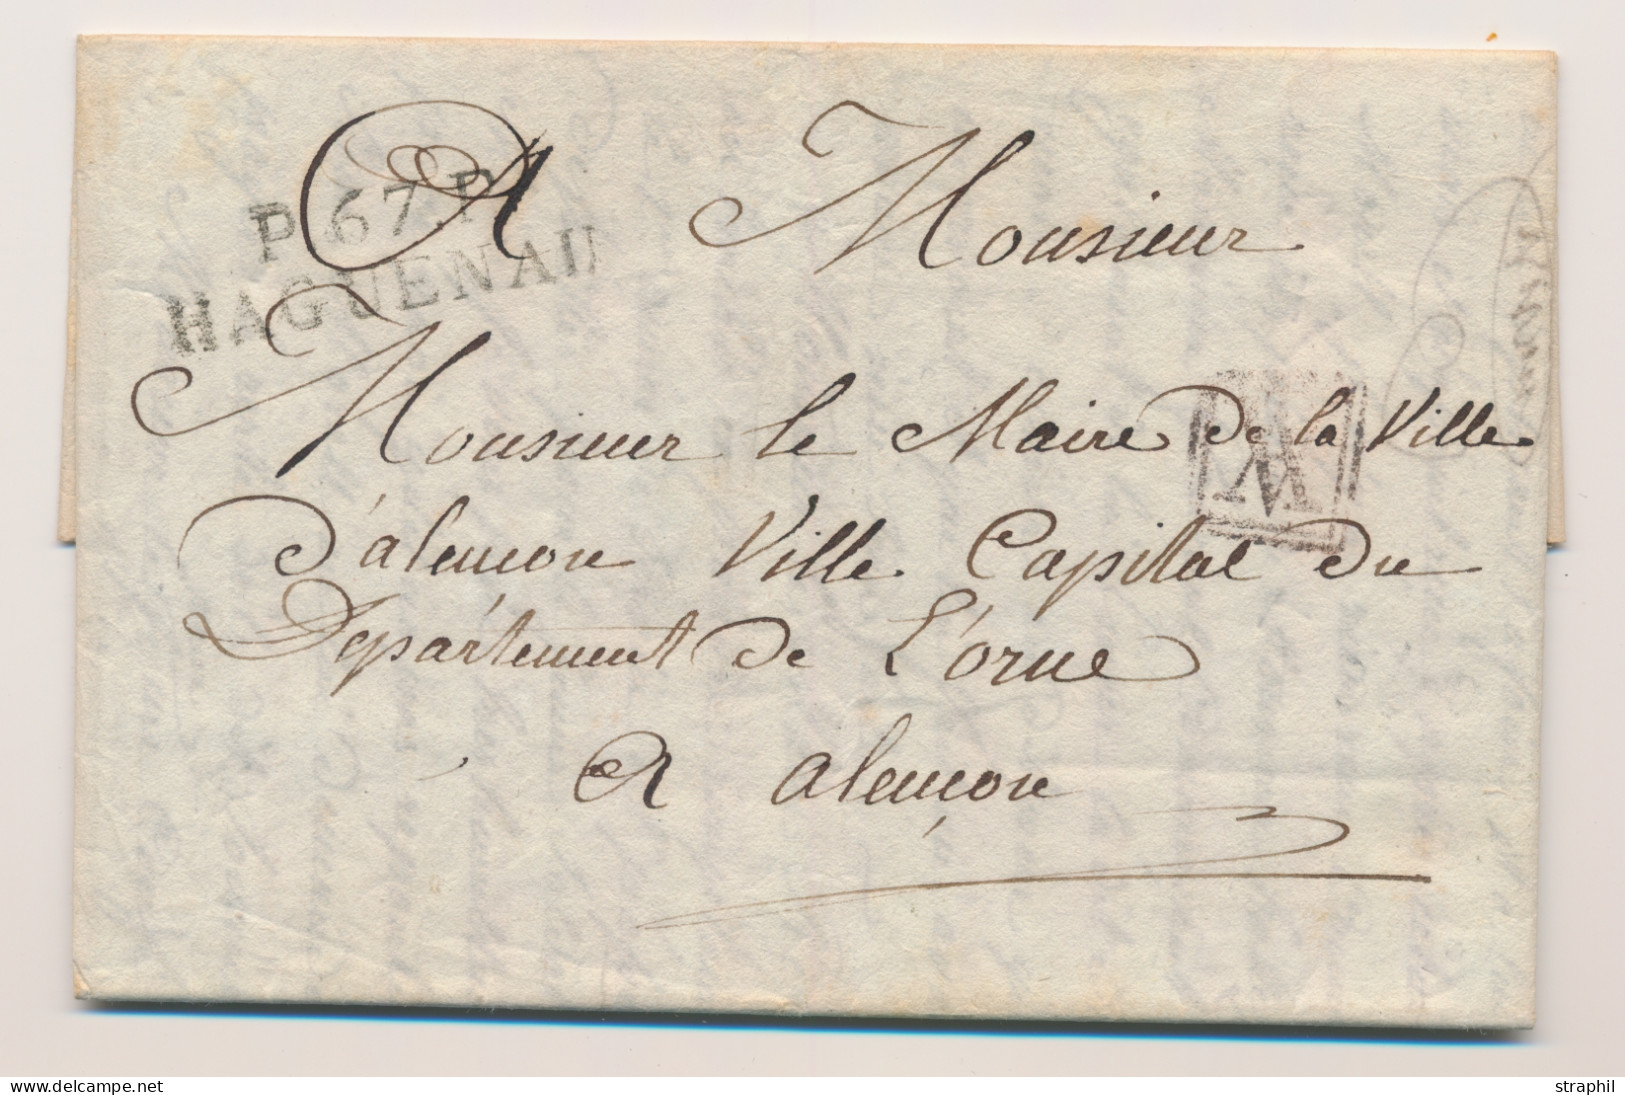 A Monsieur
P.67.P
HAGUENAU
Monsieur le Maire de la Ville
D'alencon Ville Capital du
Departement de L'orne
A alençon
straphil